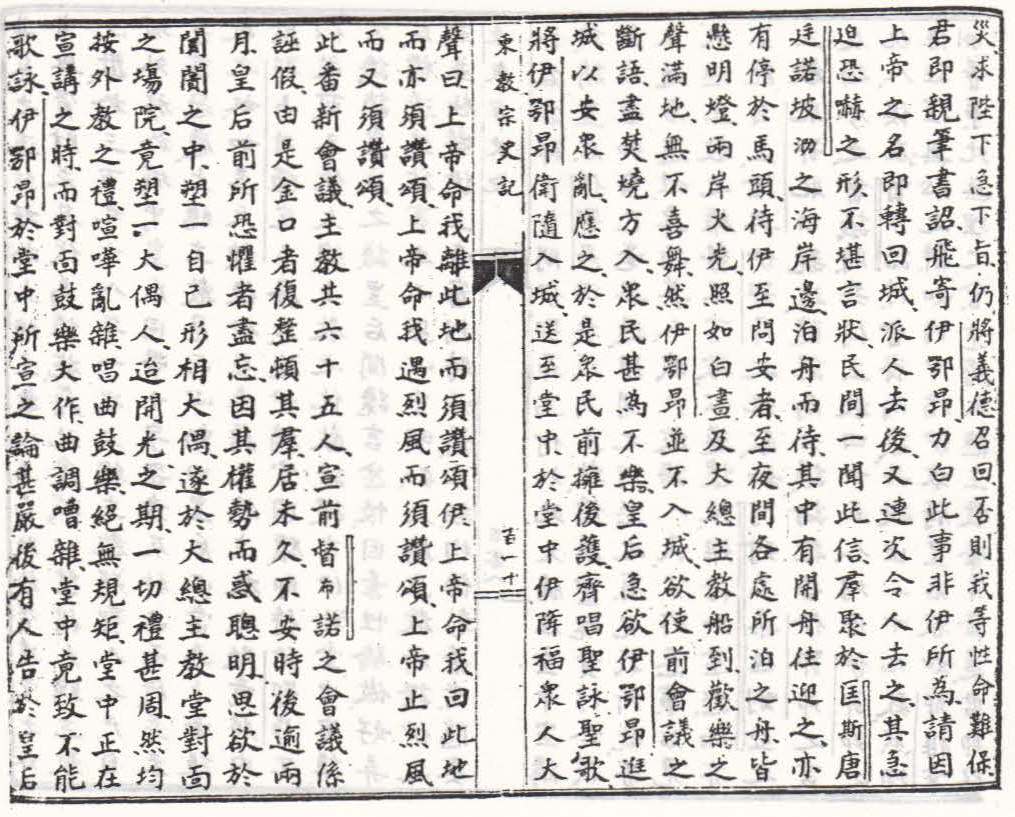 災、求陛下急下旨、仍將義德召回、否則我等性命難保、
君即親筆書詔、飛寄伊鄂昂、力白此事非伊所為、請因
上帝之名、即轉回城、派人去後、又連次令人去之、其急
迫恐嚇之形、不堪言狀、民間一聞此信、羣聚於匡斯唐
廷諾坡泐之海岸邊、泊舟而待、其中有開舟住迎之、亦
有停於馬頭、待伊至問安者、至夜間各處所泊之舟、皆
懸明燈、兩岸火光、照如白晝、及大總主教船到、歡樂之
聲滿地、無不喜舞、然伊鄂昂並不入城、欲使前會議之
斷語、盡焚燒方入、眾民甚為不樂、皇后急欲伊鄂昂進
城、以安眾亂、應之、於是眾民前擁後護、齊唱聖詠聖歌、
將伊鄂昂衛隨入城、送至堂中、於堂中伊降福眾人、大
東教宗史記
百一十
聲曰、上帝命我離此地、而須讚頌伊、上帝命我回此地
而亦須讚頌、上帝命我遇烈風而須讚頌、上帝止烈風
而又須讚頌、
此番新會議、主教共六十五人、宣前督布諾之會議係
誣假、由是金口者復整頓其羣、居未久、不安時後逾兩
月、皇后前所恐懼者盡忘、因其權勢而惑聰明、思欲於
闤闠之中、塑一自己形相大偶、遂於大總主教堂對面
之塲院、竟塑一大偶人、迨開光之期、一切禮甚周、然均
按外教之禮、喧嘩亂雜、唱曲鼓樂、絕無規矩、堂中正在
宣講之時、而對面鼓樂大作、曲調嘈雜、堂中竟致不能
歌詠、伊鄂昂於堂中所宣之論甚嚴、後有人告於皇后